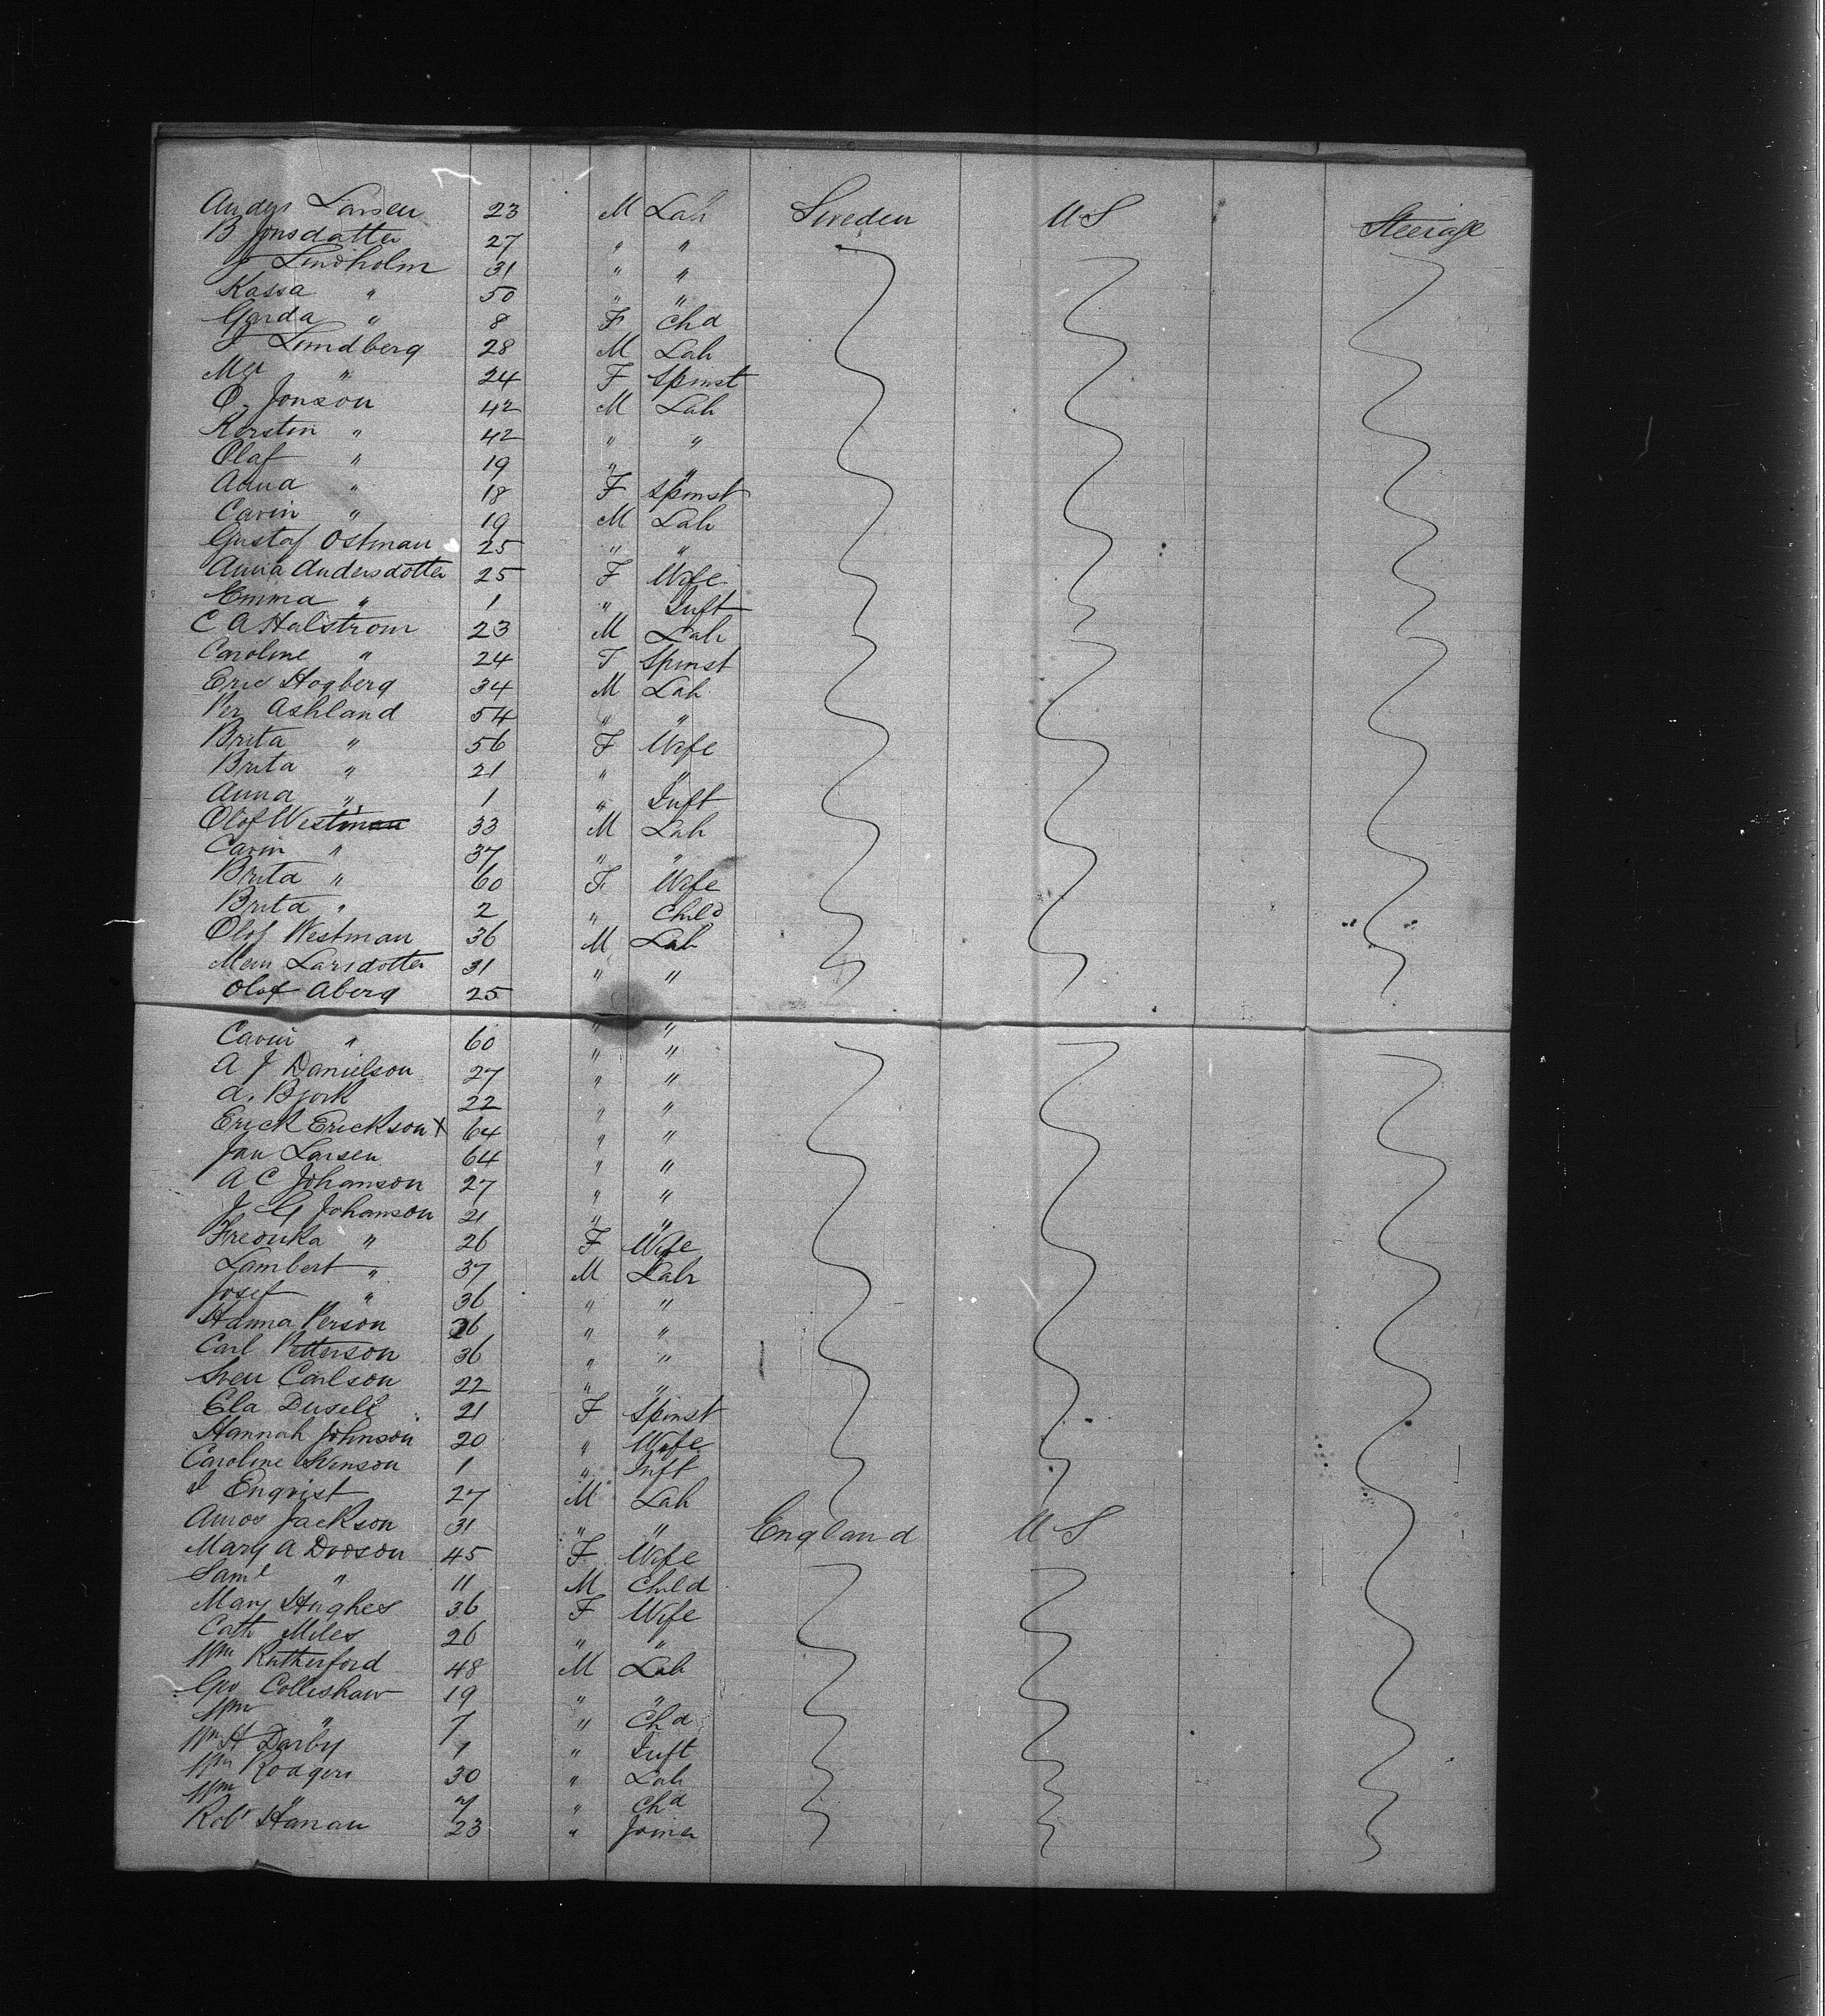 Anders Larsen 23 M Lab Sweden U S Steerage
B Jonsdatter 27 " "
J Lindholm 31 " "
Kassa " 50 " "
Gerda " 8 F Chd
J Lundberg 28 M Lab
Mgt " 24 F Spinst
O. Jonson 42 M Lab
Kerstin " 42 " "
Olaf " 19 " "
Anna " 18 F Spinst
Carin " 19 M Lab
Gustaf Ostman 25 " "
Anna Andersdotter 25 F Wife
Emma " 1 " Inft
C A Halstrom 23 M Lab
Caroline " 24 F Spinst
Eric Hogberg 34 M Lab
Per Ashland 54 " "
Brita " 56 F Wife
Brita " 21 " "
Anna " 1 " Inft
Olof Westman 33 M Lab
Carin " 37 " "
Brita " 60 F Wife
Brita " 2 " Child
Olof Westman 36 M Lab
Larsdotter 31 " "
Olof Aberg 25 " "
Carin " 60 " "
A J Danielson 27 " "
A. Bjork 22 " "
Erick Erickson X 64 " "
Jan Larsen 64 " "
A C Johanson 27 " "
J G Johanson 21 " "
Fredrika " 26 F Wife
Lambert " 37 M Lab
Josef " 36 " "
Hanna Person 26 " "
Carl Petterson 36 " "
Sven Carlson 22 " "
Ela Dusell 21 F Spinst
Hannah Johnson 20 " Wife
Caroline Svenson 1 " Inft
Enqvist 27 M Lab
Amos Jackson 31 " " England U S
Mary A Dodson 45 F Wife
Saml " 11 M Child
Mary Hughes 36 F Wife
Cath Miles 26 " "
Wm Rutherford 48 M Lab
Geo Collishaw 19 " "
Wm " 7 " Chd
Wm H Darby 1 " Inft
Wm Rodgers 30 " Lab
Wm " 7 " Chd
Robt Hanan 23 " Joiner